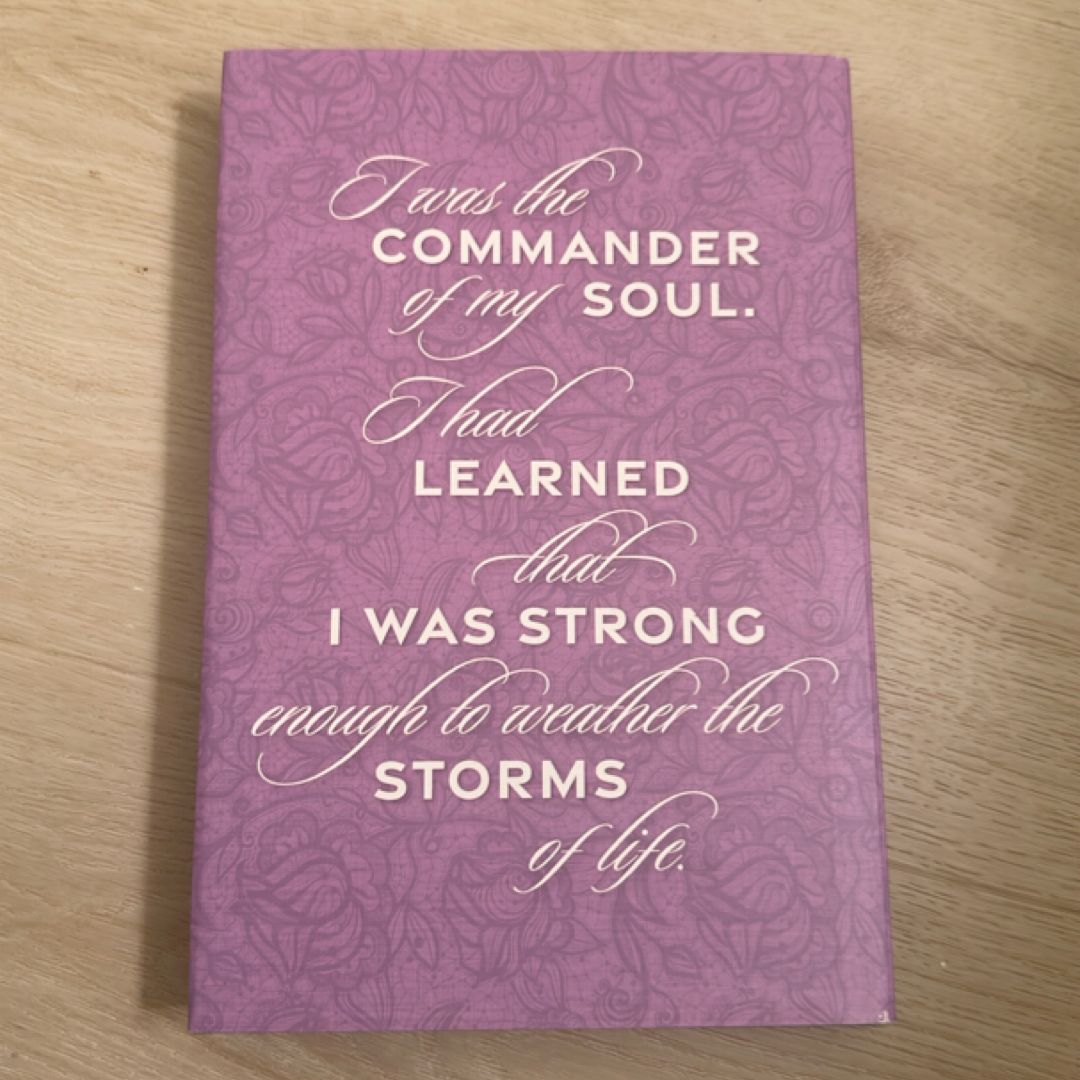 I was the
COMMANDER
of my SOUL.
I had
LEARNED
that
I WAS STRONG
enough to weather the
STORMS
of life.